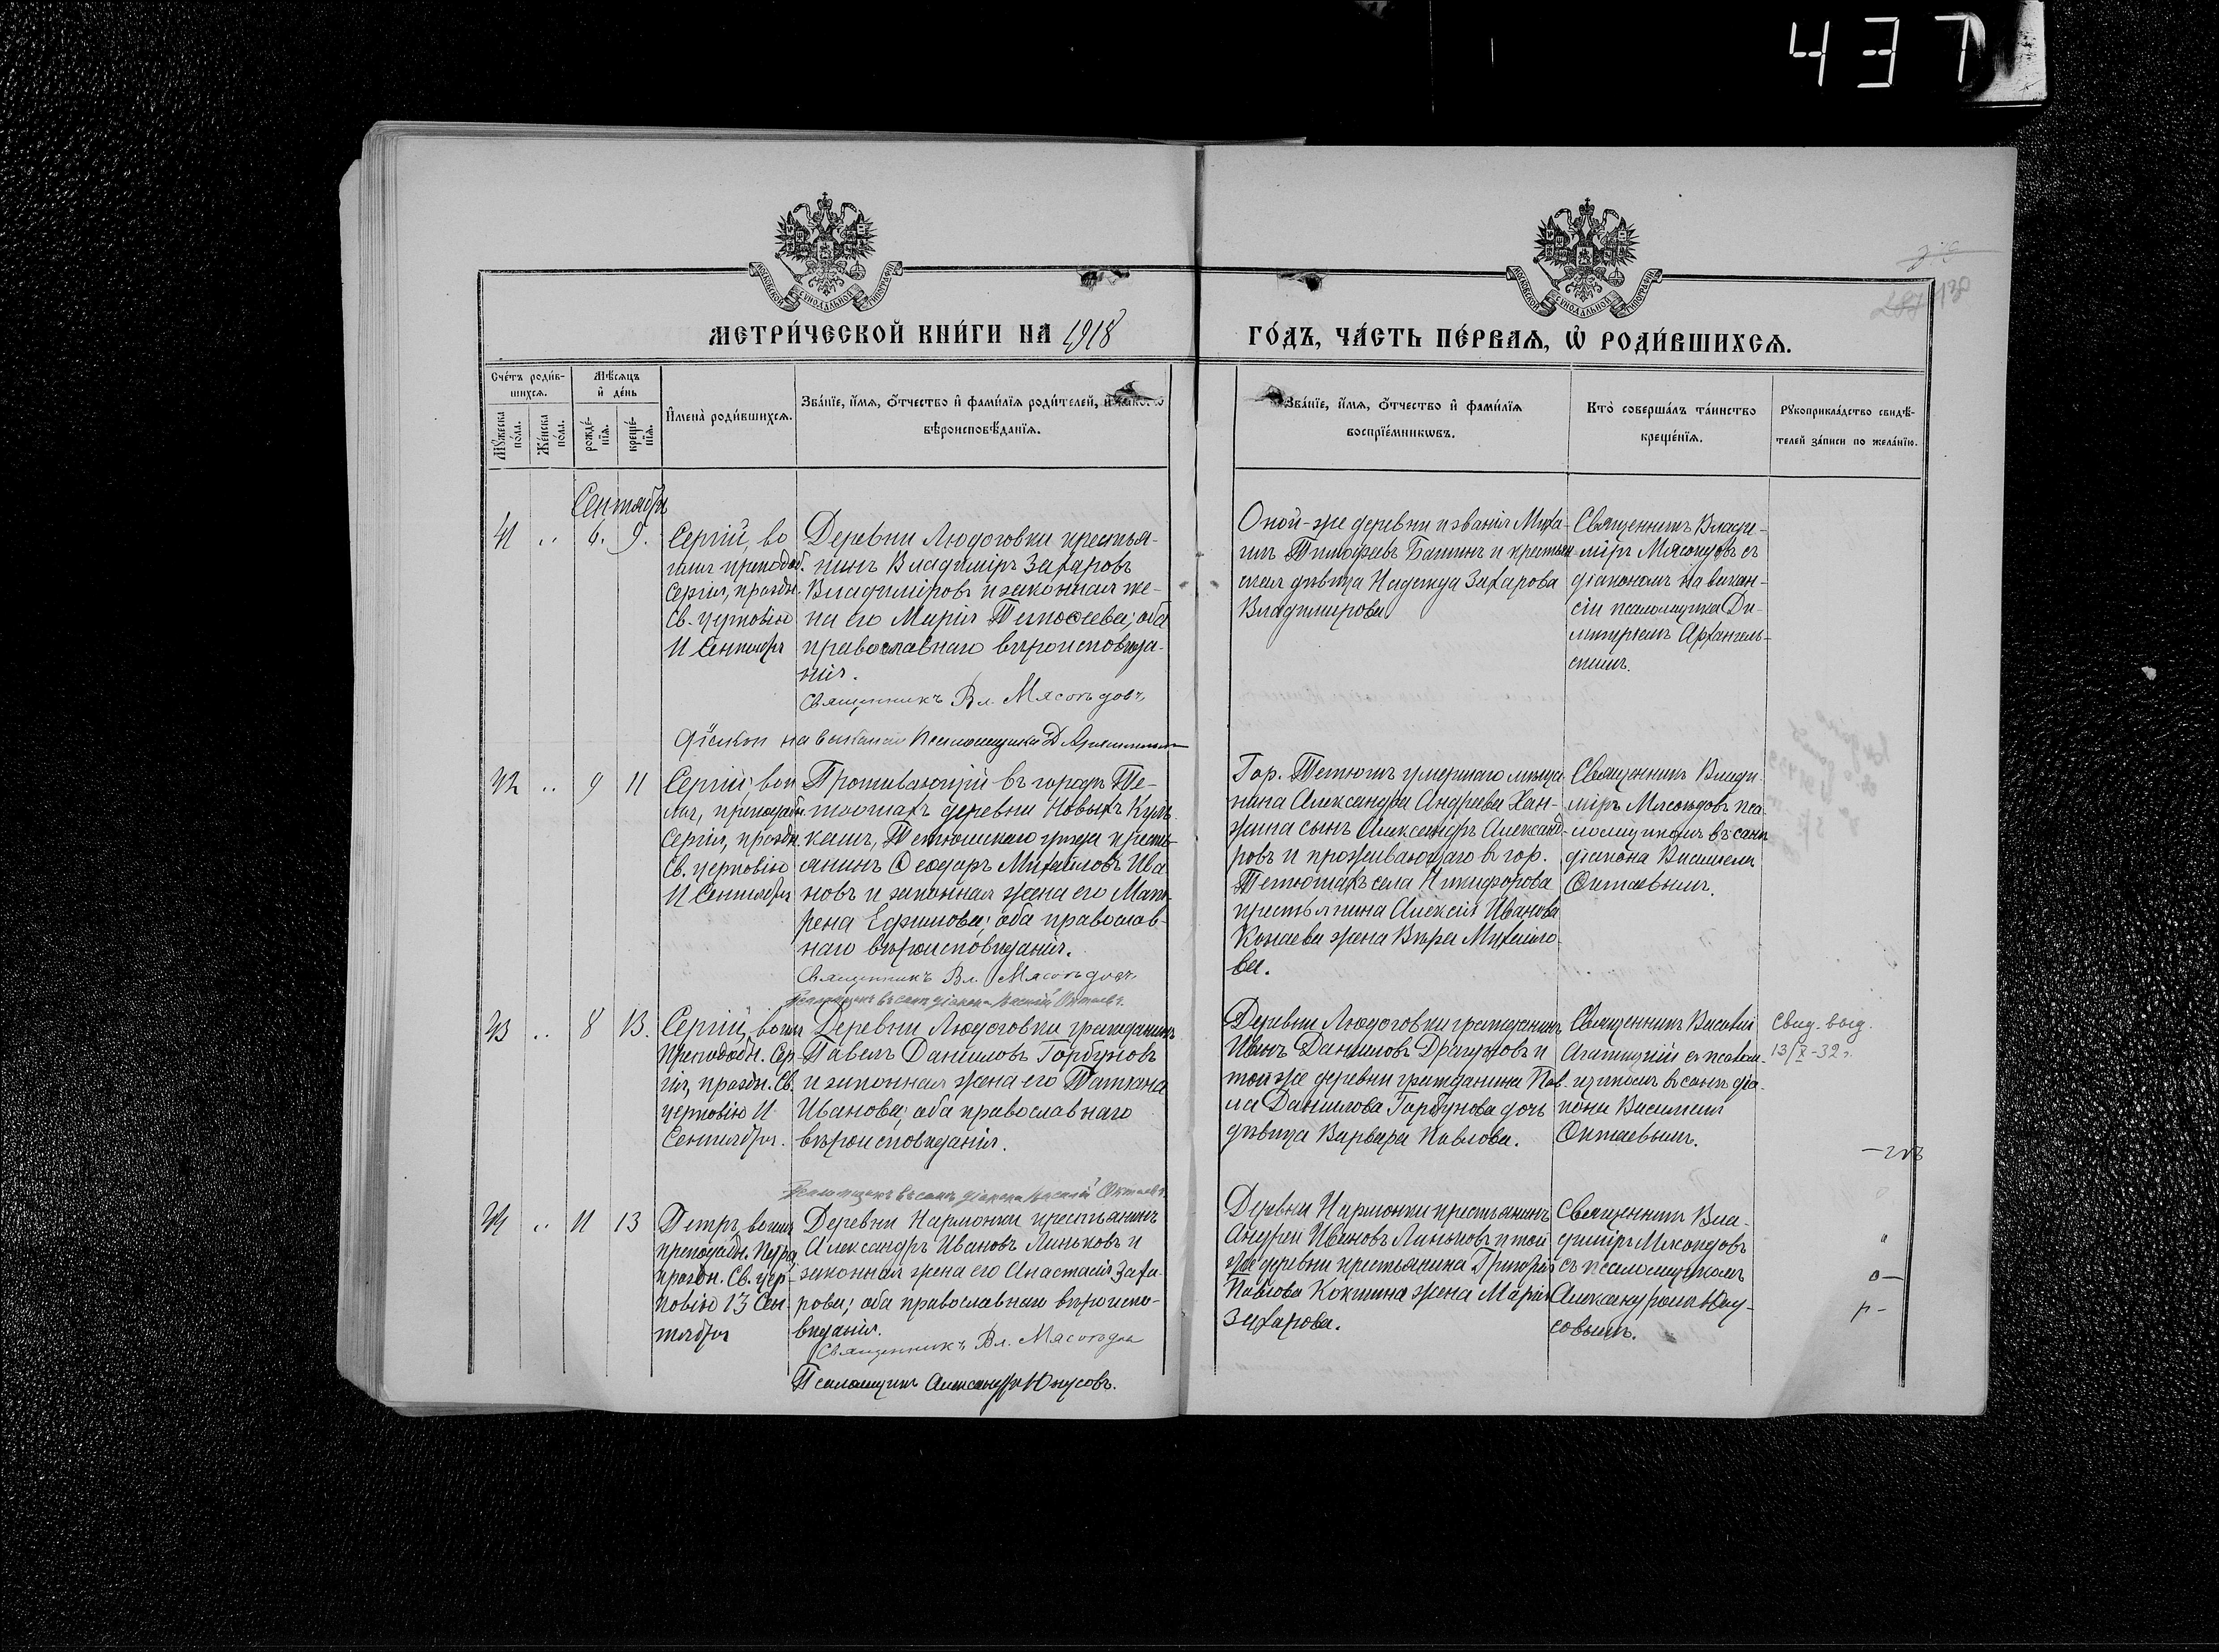 437
МОСКОВСКОЙ СѴНОДАЛЬНОЙ ТИПОГРАФІИ
МОСКОВСКОЙ СѴНОДАЛЬНОЙ ТИПОГРАФІИ
МЕТРИ́ЧЕСКОЙ КНИ́ГИ НА 1918
ГО́ДЪ, ЧА́СТЬ ПЕ́РВАѦ, Ѡ҆ РОДИ́ВШИХСѦ.
Сче́тъ роди́в-
шихсѧ.
Мꙋ́жеска
по́ла.
Же́нска
по́ла.
Мѣ́сѧцъ
и҆ де́нь
рожде́-
нїѧ.
креще́-
нїѧ.
И҆мена̀ роди́вшихсѧ.
Зва́нїе, и҆́мѧ, ѻ҆́тчество и҆ фами́лїѧ роди́телей, и҆
вѣроисповѣ́данїѧ.
Зва́нїе, и҆́мѧ, ѻ҆́тчество и҆ фами́лїѧ
воспрїе́мникѡвъ.
Кто̀ соверша́лъ та́инство
креще́нїѧ.
Рꙋкоприкла́дство свидѣ́-
телей за́писи по жела́нїю.
Сентябрь
41 .. 6. 9.
Сергій, во
имя преподоб.
Сергія, праздн.
Св. церковію
11 Сентября
Деревни Людоговки крестья-
нинъ Владиміръ Захаровъ
Владиміровъ и законная же-
на его Марія Тимоѳеева; оба
православнаго вѣроисповѣда-
нія.
Священникъ Вл. Мясоѣдовъ
діакон на вакансіи псаломщика Д
Оной-же деревни и званія Миха-
илъ Тимоѳеевъ Башинъ и крестьян
ская дѣвица Надежда Захарова
Владимирова
Священникъ Влади-
міръ Мясоѣдовъ съ
діакономъ на вакан-
сіи псаломщика Ди-
митріемъ Архангель-
скимъ.
42 .. 9 11
Сергій, во и
мя, преподобн.
Сергія, праздн
Св. церковію
11 Сентября
Проживающій въ городѣ Те-
тюшахъ деревни Новыхъ
Тетюшскаго уѣзда кресть-
янинъ Ѳеодоръ Михайловъ Ива
новъ и законная жена его Мат-
рена Ефимова; оба православ-
наго вѣроисповѣданія.
Священникъ Вл. Мясоѣдовъ
Псаломщикъ въ санѣ діакона Василій Октаевъ.
Гор. Тетюшъ умершаго мѣща
нина Александра Андреева Хан-
жина сынъ Александръ Александ-
ровъ и проживающаго въ гор.
Тетюшахъ села Никифорова
крестьянина Алексія Иванова
Конаева жена Вѣра Михайло-
ва.
Священникъ Влади-
міръ Мясоѣдовъ пса-
ломщикомъ въ санѣ
діакона Василіемъ
Октаевымъ.
43 .. 8 13.
Сергій, во имя
Преподобн. Сер-
гія, праздн. Св.
церковію 11
Сентября.
Деревни Людоговки гражданинъ
Павелъ Даниловъ Горбуновъ
и законная жена его Татіана
Иванова; оба православнаго
вѣроисповѣданія.
Псаломщикъ въ санѣ діакона Василій Октаевъ.
Деревни Людоговки гражданинъ
Иванъ Даниловъ и
той же деревни гражданина Пав
ла Данилова Горбунова дочь
дѣвица Варвара Павлова.
Священникъ Василій
съ псалом-
щикомъ въ санѣ діа-
кона Василіемъ
Октаевымъ.
Свид. выд.
13/X-32 г.
44 .. 11 13
Петръ, во имя
преподобн. Петра,
праздн. Св. цер-
ковію 13 Сен-
тября
Деревни Нармонки крестьянинъ
Александръ Ивановъ Линьковъ и
законная жена его Анастасія Заха
рова; оба православнаго вѣроиспо-
вѣданія.
Священникъ Вл. Мясоѣдовъ
Псаломщикъ Александръ Юнусовъ.
Деревни Нармонки крестьянинъ
Андрей Ивановъ Линьковъ и той
же деревни крестьянина Григорія
Павлова Кокшина жена Марія
Захарова.
Священникъ Вла-
диміръ Мясоѣдовъ
съ псаломщикомъ
Александромъ Юну-
совымъ.